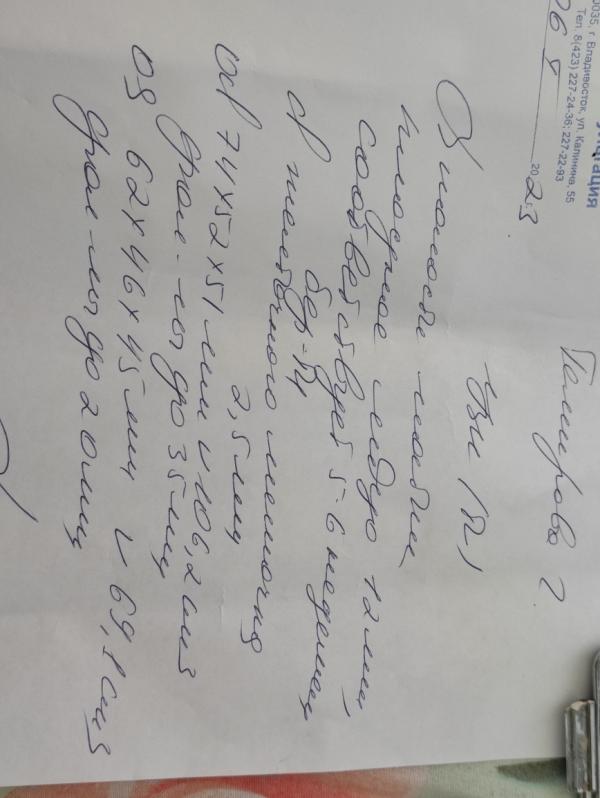 тация
0035, г. Владивосток, ул. Калинина, 55
Тел. 8(423) 227-24-36; 227-22-93
06 8 2023
Темирова
Узи
В полости матки
плодное яйцо 12мм,
соответствует 5-6 недель
бер-ти
ср желточного мешочка
2,5мм
ОД 74х52х51мм V 106,2см3
фол-лы до 35мм
OS 62х46х45мм V 69,1см3
фол-лы до 20мм